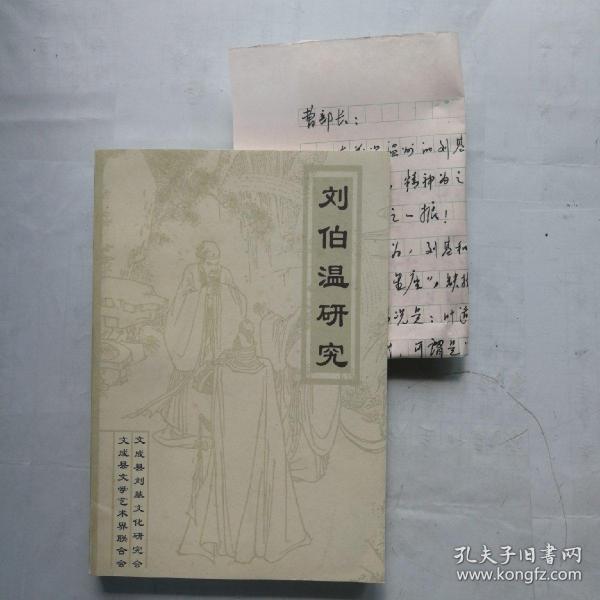 刘伯温研究
文成县刘基文化研究会
文成县文学艺术界联合会
曹部长：
温州的刘基
，精神为之
之一振！
为，刘基和
况是：叶适
，可谓是
孔夫子旧书网
www.kongfz.com